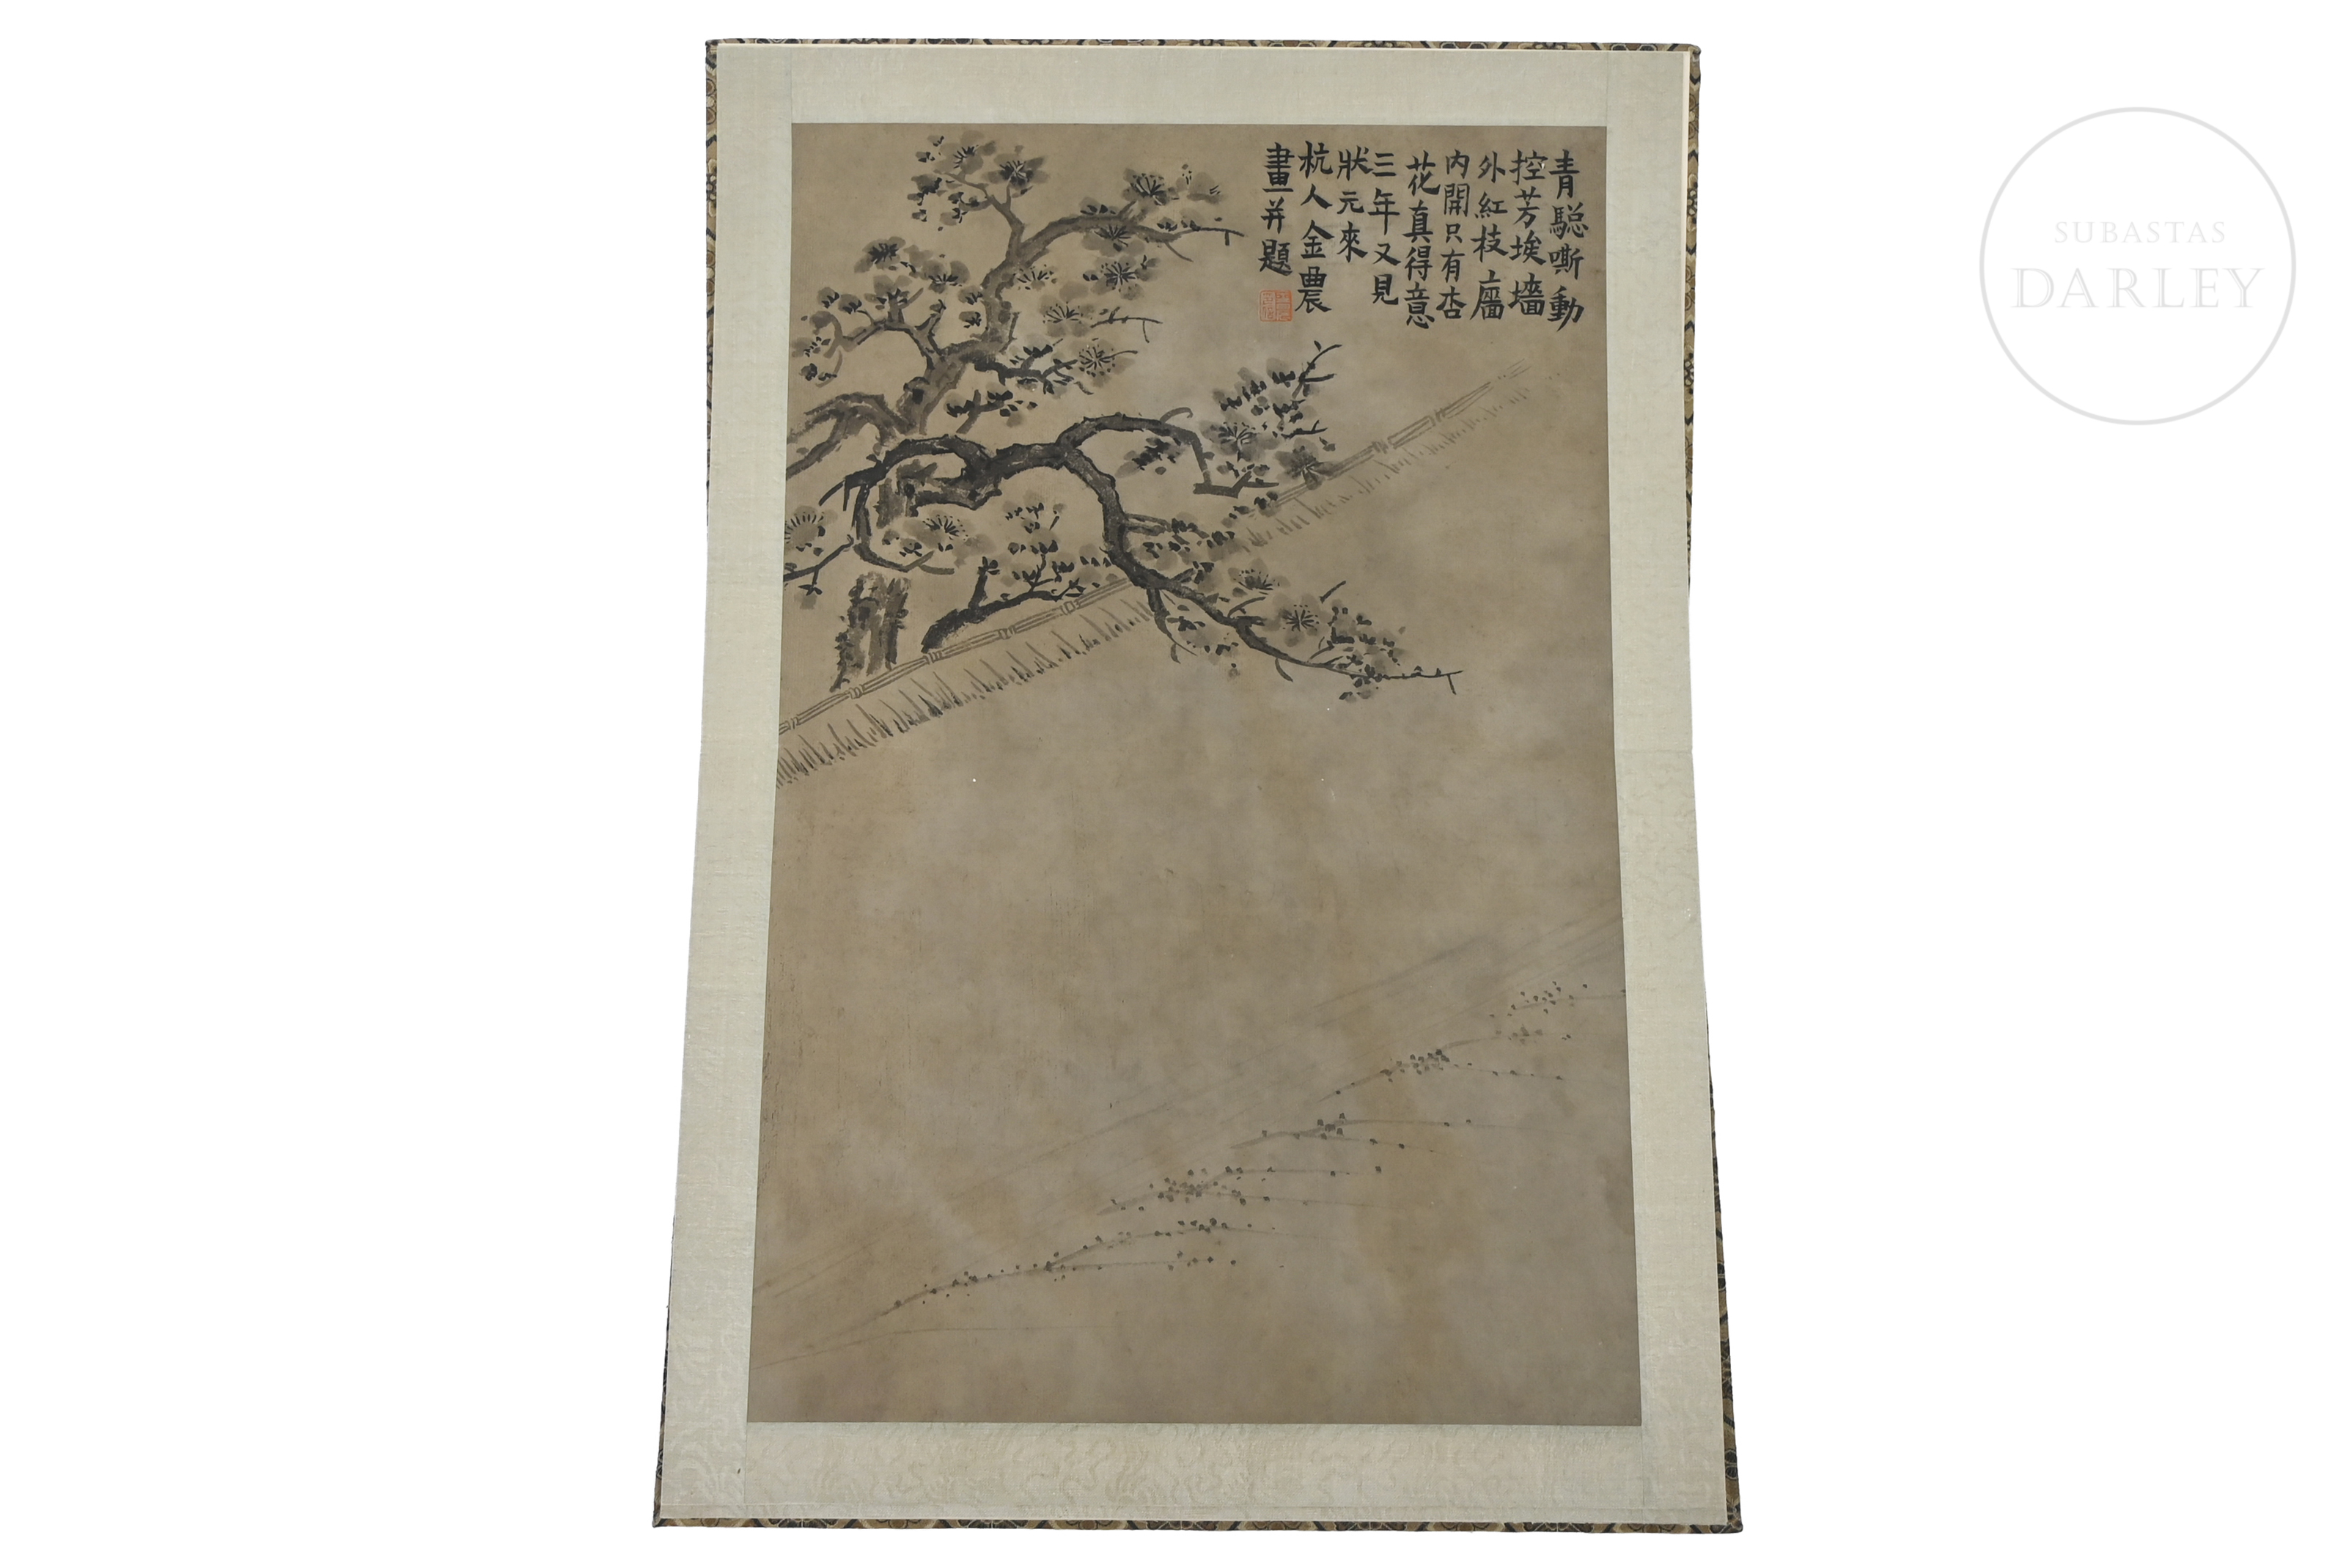 青驄嘶動
控芳埃墻
外紅枝墻
內開只有杏
花真得意
三年又見
狀元來
杭人金農
畫并題
SUBASTAS
DARLEY